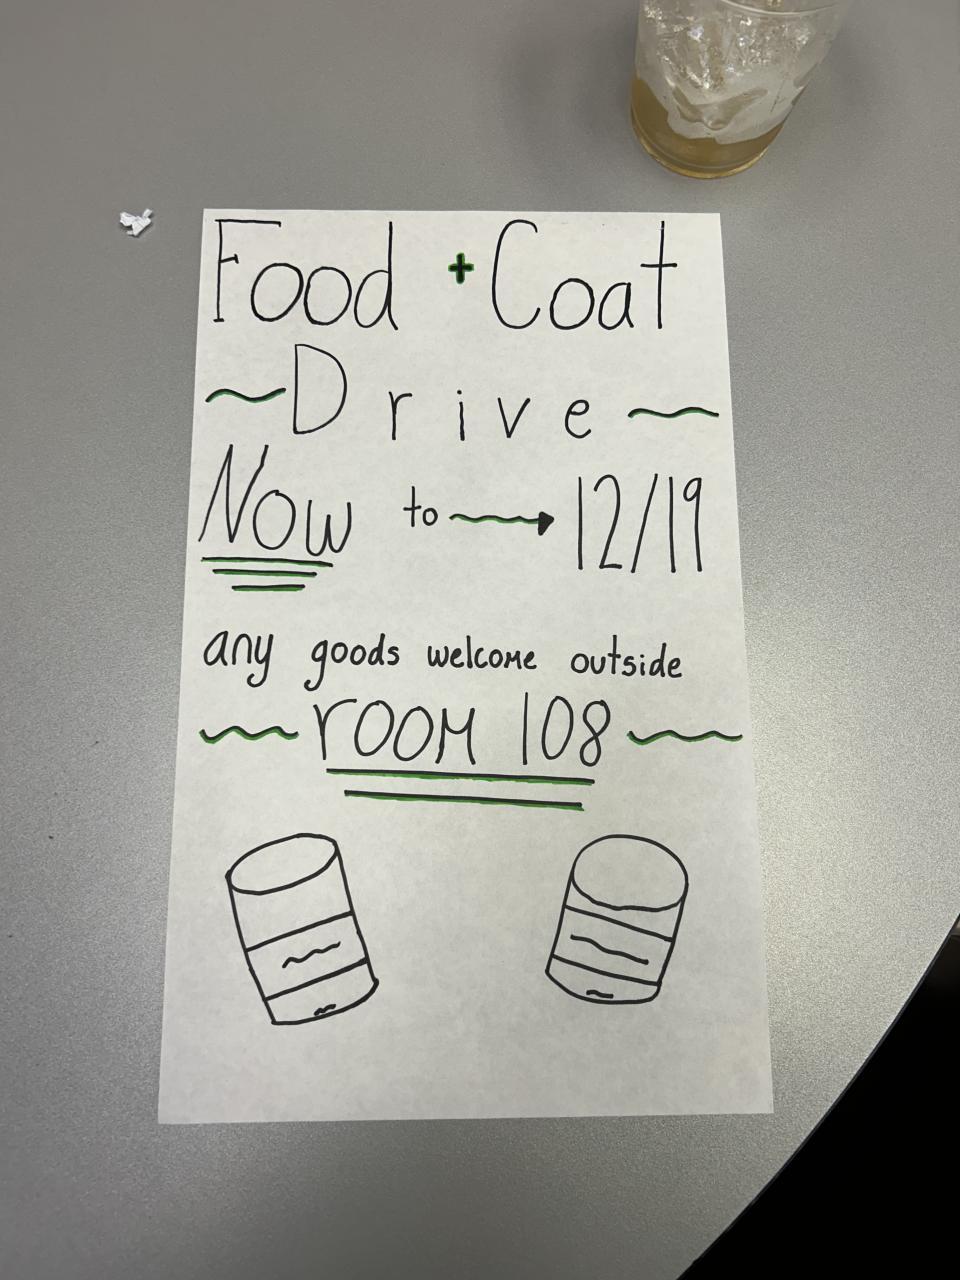 Food + Coat
~ Drive ~
Now to → 12/19
any goods welcome outside
room 108